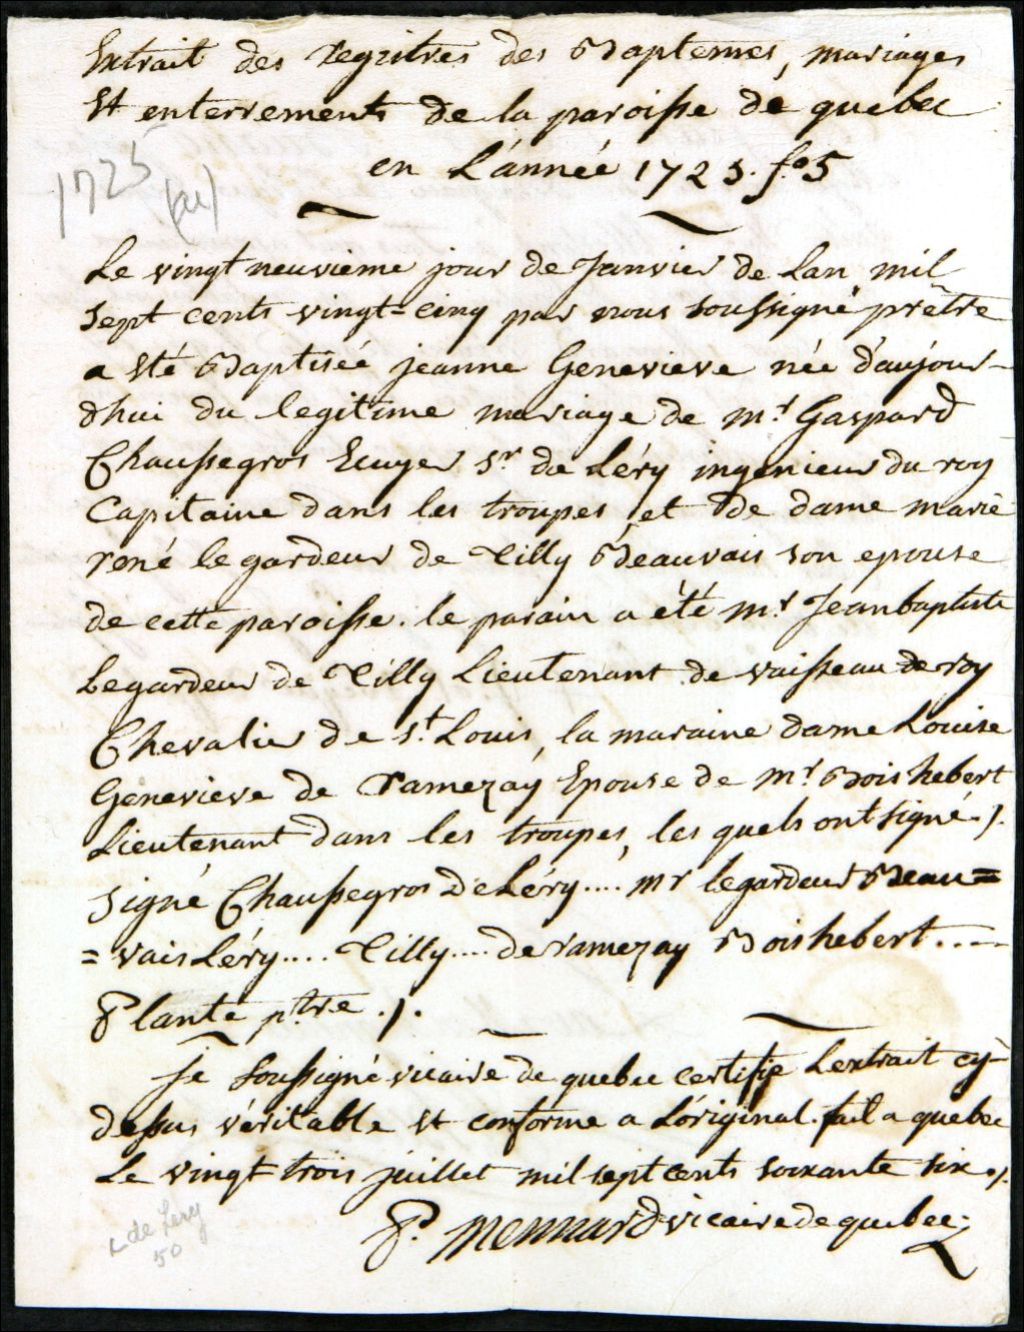 Extrait des regitres des Baptemes, mariages
Et enterrements de la paroisse de quebec
en L'année 1725. f.o 5
1725
(Le vingt neuvieme jour de Janvier de Lan mil
Sept cents vingt-cinq par nous soussigné prêtre
a Eté Baptiséé jeanne Genevieve née d'aujour-
dhui du legitime mariage de mr. Gaspard
Chaussegros Ecuyer Sr. de Léry ingenieur du roy
Capitaine dans les troupes, et de dame marie
rené le gardeur de Tilly Beauvais son epouse
de cette paroisse. le parain a été mr. Jean baptiste
Legardeur de Tilly Lieutenant de vaisseau de roy
Chevalier de St. Louis, la maraine dame Louise
Génevieve de ramezay Epouse de mr. Bois hebert
Lieutenant dans les troupes, les quels ont signé./.
Signé Chaussegros De Léry.... mr legardeur Beau=
=vais Léry.... Tilly.... de ramezay Bois hebert.....
Plante ptre ./.
je Soussigné vicaire de quebec certifie L'extrait cy-
dessus véritable Et conforme a L'original. fait a quebec
Le vingt trois juillet mil sept cents soixante six./.
P. mennard vicaire de quebec.
de Lery
50